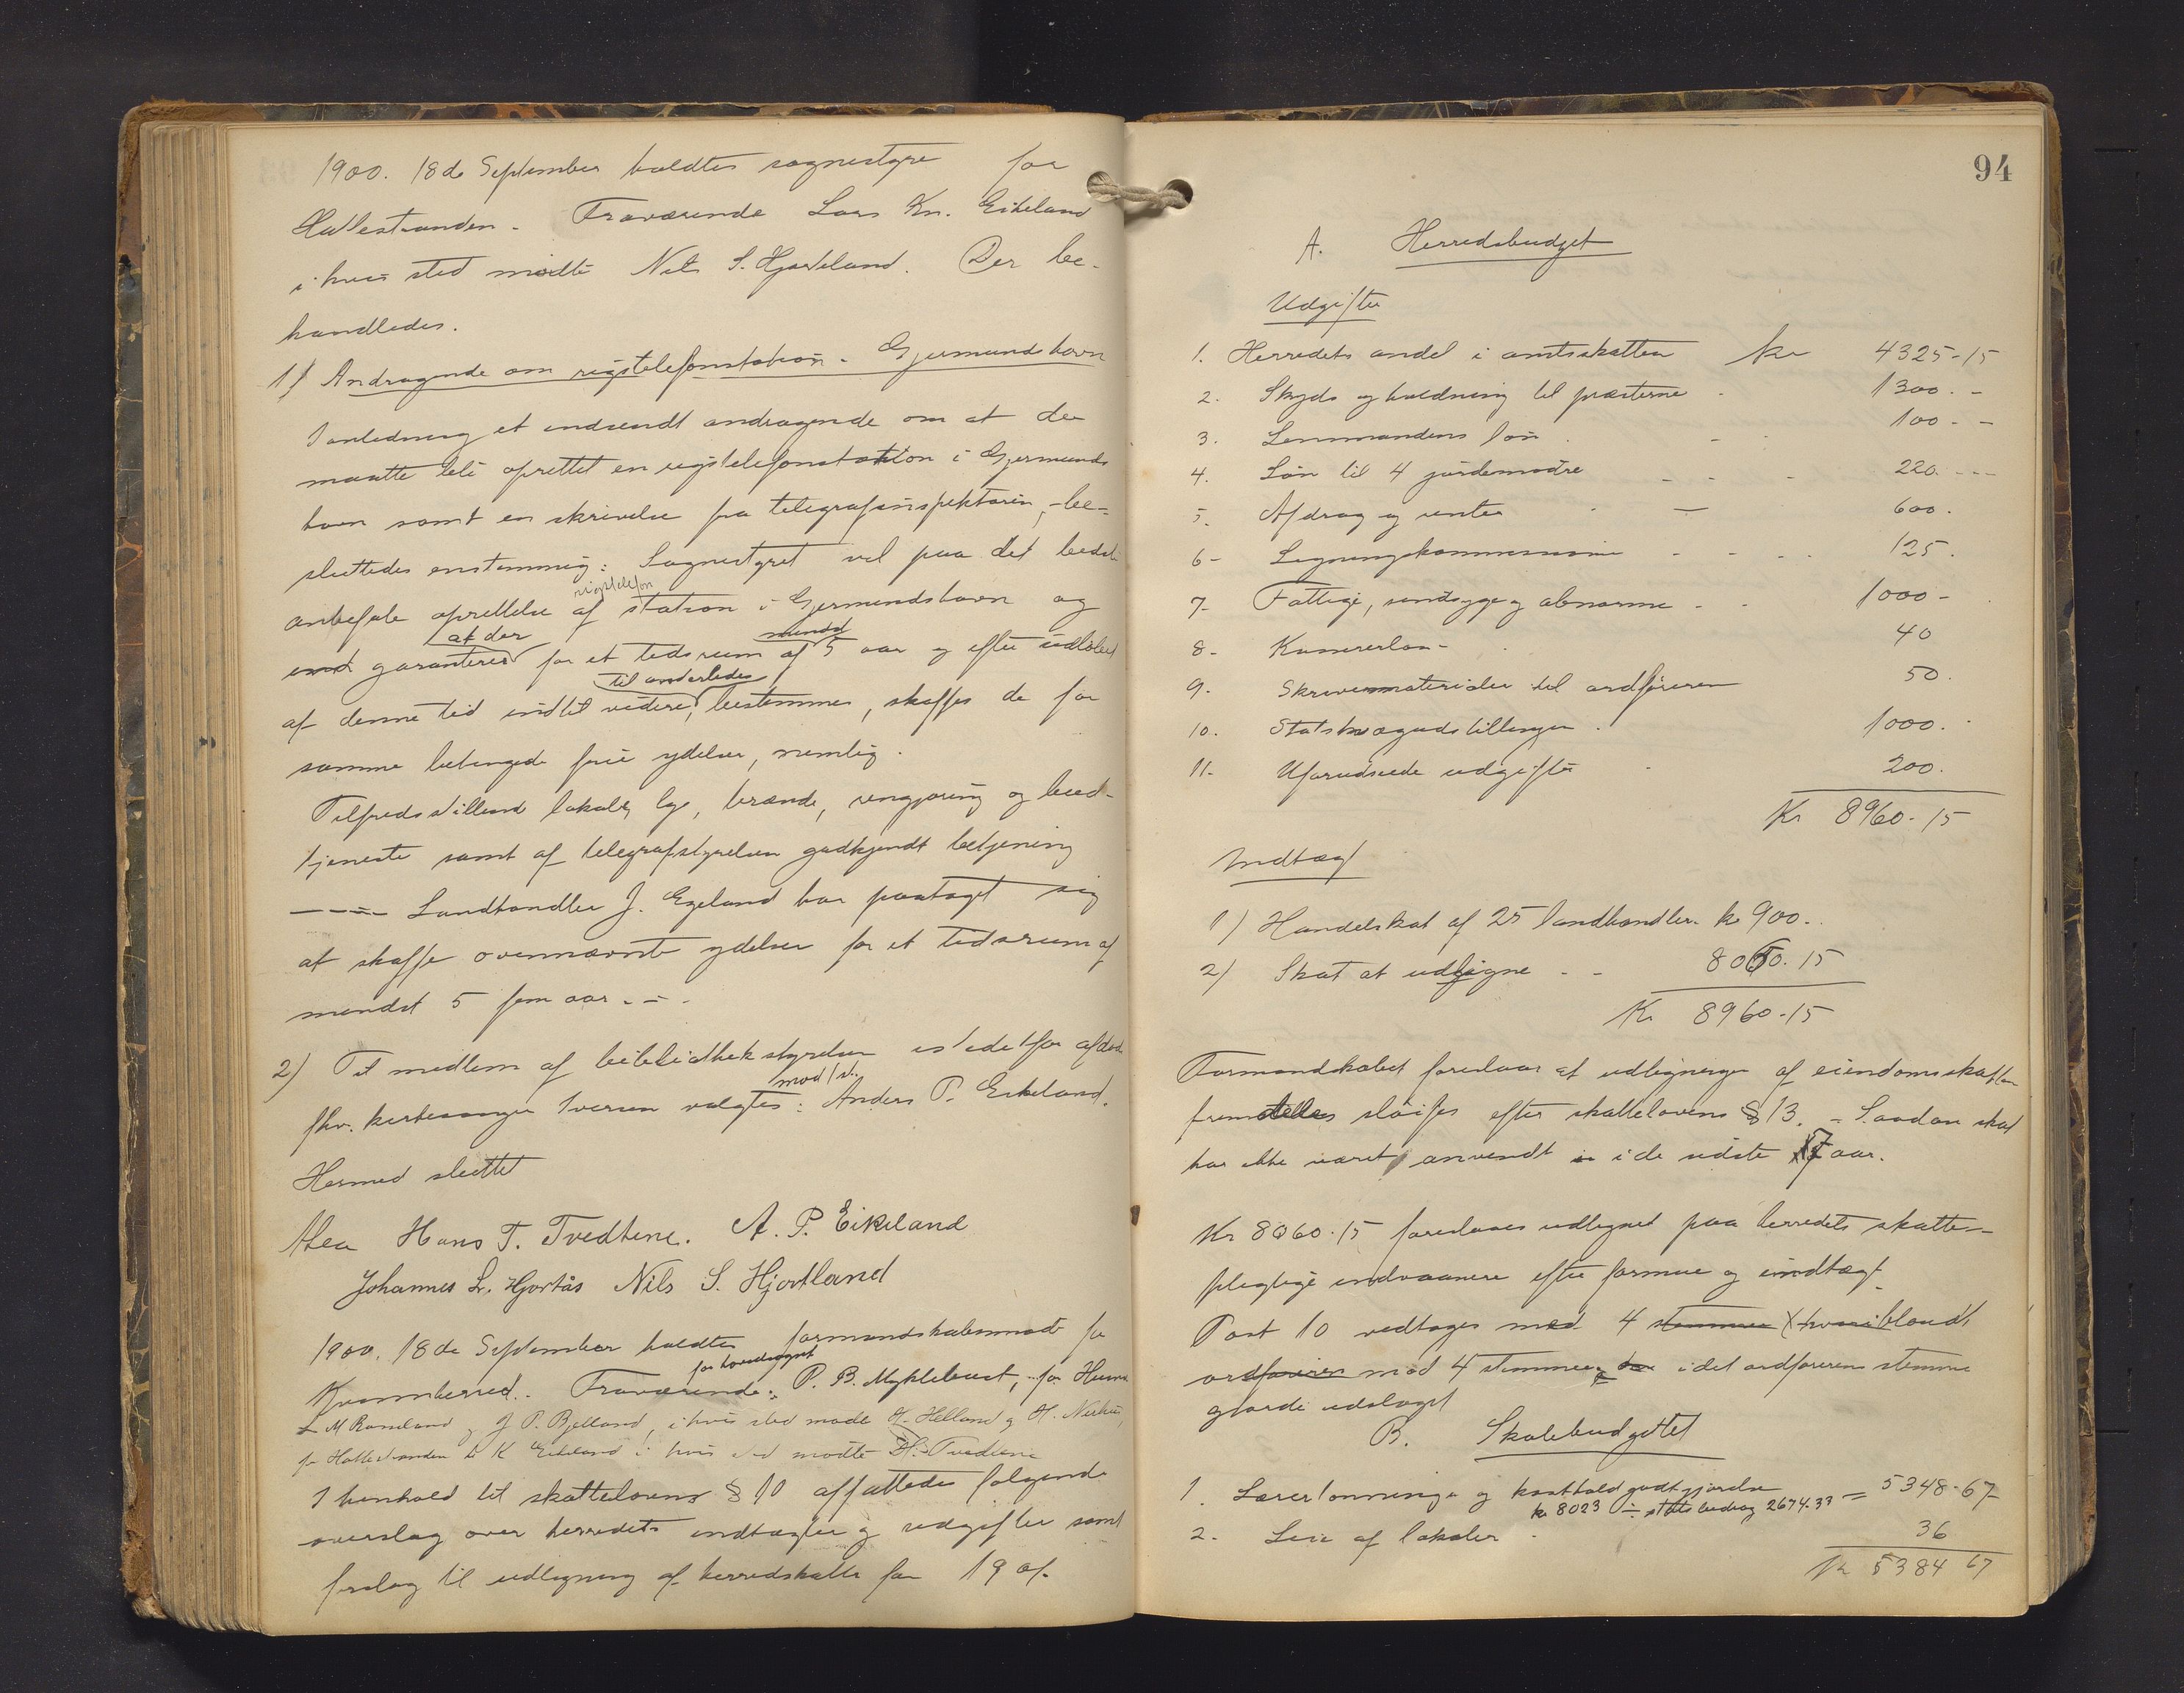 1900. 18de September holdtes sognestyre for
Hatlestranden. Fraværende Lars Kn. Eikeland
i hvis sted mødte Nils S. Hjortland. Der be-
handledes.
1) Andragende om rigstelefonstation - Gjermundshavn
I anledning et indsendt andragende om at der
maatte bli oprettet en rigstelefonstation i Gjermunds
havn samt en skrivelse fra telegrafinspektøren, be-
sluttedes enstemmig: Sognestyret vil paa det bedste
anbefale oprettelse af rigstelefon station i Gjermundshavn og
at der garanteres for et tidsrum af mindst 5 aar og efter udløbet
af denne tid indtil videre, til anderledes bestemmes, skaffes de for
samme betingede frie ydelser, nemlig.
Tilfredsstillende lokale, lys, brænde, rengjøring og bud-
tjeneste samt af telegrafstyrelsen godkjendt betjening
---- Landhandler J. Egeland har paataget sig
at skaffe ovennævnte ydelser for et tidsrum af
mindst 5 fem aar. - -
2) Til medlem af bibliothekstyrelsen istedetfor afdøde
fhv. kirkesanger Iversen valgtes mod 1 st.: Anders P. Eikeland.
Hermed sluttet
Hans T. Tvedtene. A. P. Eikeland
Johannes L. Hjortås Nils S. Hjortland
1900. 18de September holdtes formandskabsmøde for
Kvamherred. Fraværende: for hovedsognet P. B. Myklebust, for Husnes
L M Rameland og J P. Bjelland, i hvis sted mødte H. Helland og H.
for Hatlestranden L K Eikeland i hvis sted mødte H. Tvedtene
I henhold til skattelovens § 10 affattedes følgende
overslag over herredets indtægter og udgifter samt
forslag til udligning af herredskatte for 1901.
94
A. Herredsbudget
Udgifter
1. Herredets andel i amtsskatten kr 4325-15
2. Skyds og holdning til præsterne - 1300. -
3. Lensmandens løn. - - 100 - -
4. Løn til 4 jordemødre - - - 220. ---
5. Afdrag og renter - — 600.
6- Ligningskommissionen - - - - 125.
7- Fattige, sindsyge og abnorme - - 1000 -
8- Kæmnerløn - 40
9. Skrivematerialer til ordføreren 50.
10. Statskvægudstillingen. 1000.
11- Uforudseede udgifter - 200.
Kr 8960-15
Indtægt
1) Handelskat af 25 landhandlere kr 900..
2) Skat at udligne - - 8060.15
Kr 8960-15
Formandskabet foreslaar at udligningen af eiendomsskatten
fremdeles sløifes efter skattelovens § 13. - Saadan skat
har ikke været anvendt i de sidste 17 aar.
Kr 8060.15 foreslaaes udlignet paa herredets skatte-
pligtige indvaanere efter formue og indtægt.
Post 10 vedtages med 4 stemmer (hvoriblandt
ordføreren mod 4 stemmer, idet ordførerens stemme
gjorde udslaget
B. Skolebudgettet
1. Lærerlønninger og kostholdgodtgjørelse
kr 8023 ÷ stats bidrag 2674.33 = 5348-67
2. Leie af lokaler - 36
Kr 5384 67